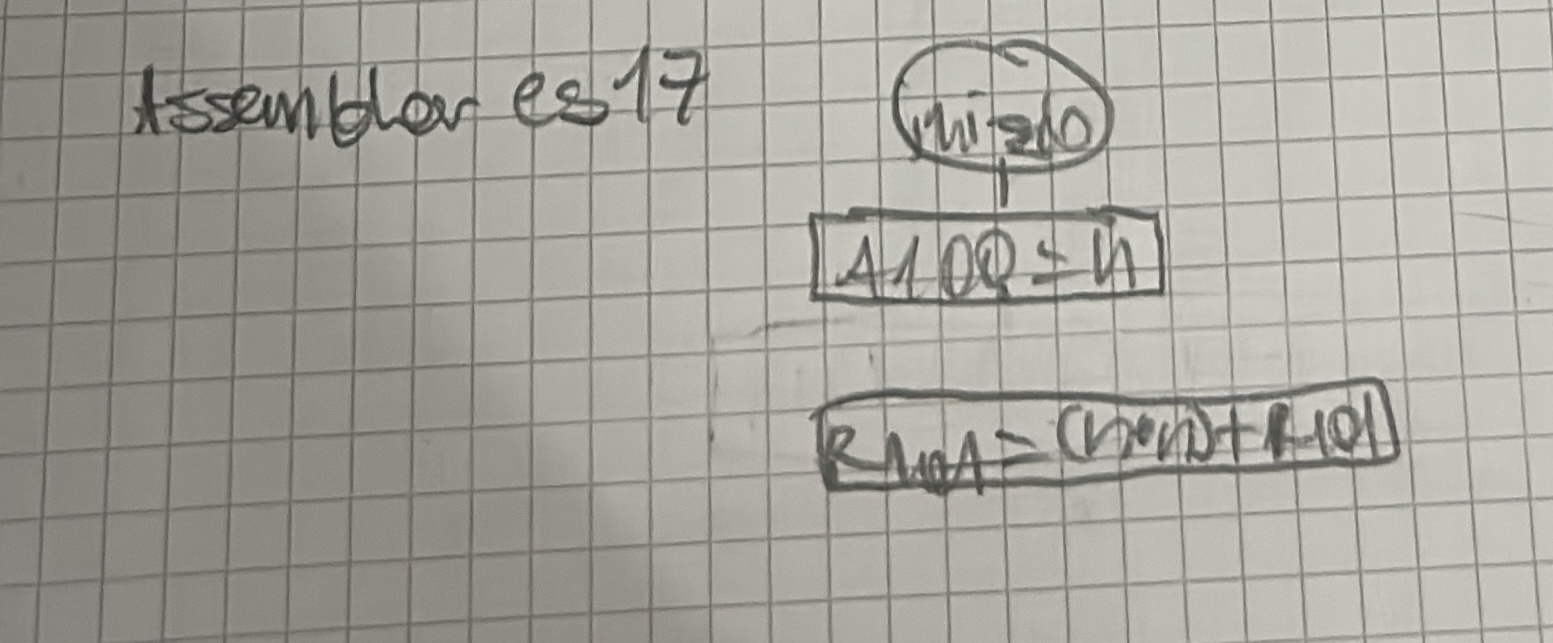 Assembler es 17
inizio
A100 = n
R101 = (n•n) + R101